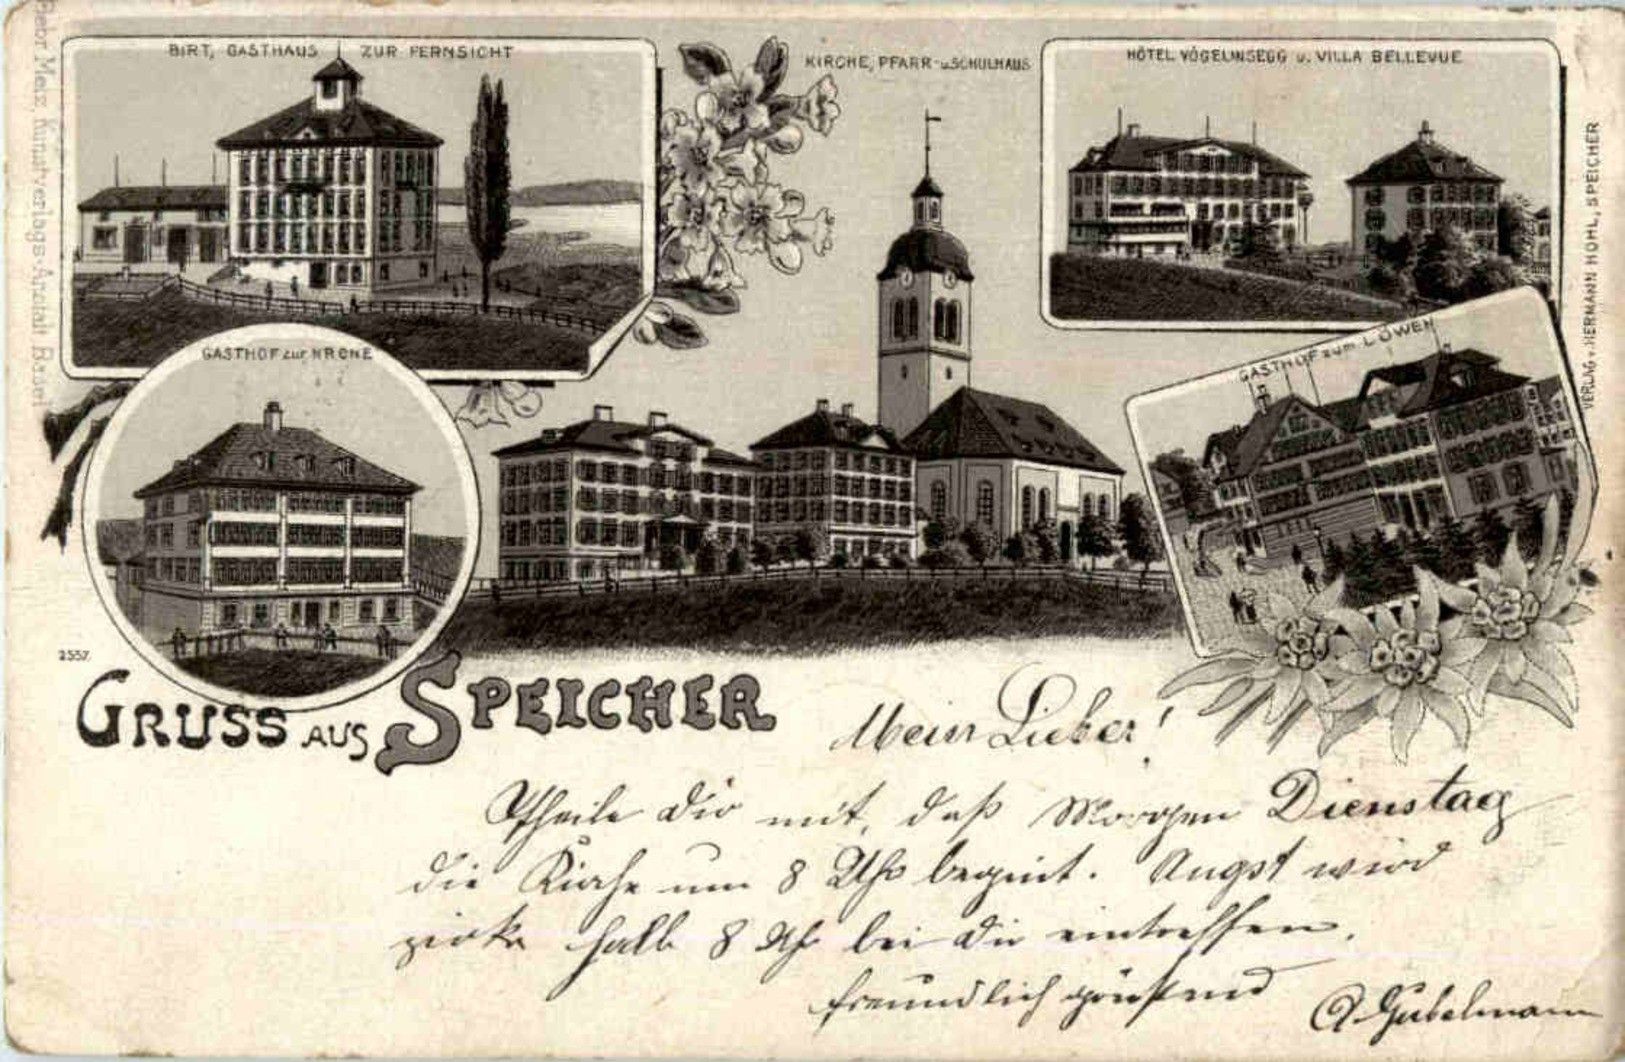 BIRT, GASTHAUS ZUR FERNSICHT
KIRCHE, PFARR- u. SCHULHAUS
HÔTEL VÖGELINSEGG u. VILLA BELLEVUE
GASTHOF zur KRONE
GASTHOF zum LÖWEN
VERLAG v. HERMANN HOHL, SPEICHER
Gebr. Metz, Kunstverlags-Anstalt Basel
2557.
GRUSS AUS SPEICHER
Mein Lieber!
Theile Dir mit, daß Morgen Dienstag
die Kirche um 8 Uhr begint. Angst wird
zirka halb 8 Uhr bei Dir eintreffen.
freundlich grüßend
A. Gubelmann